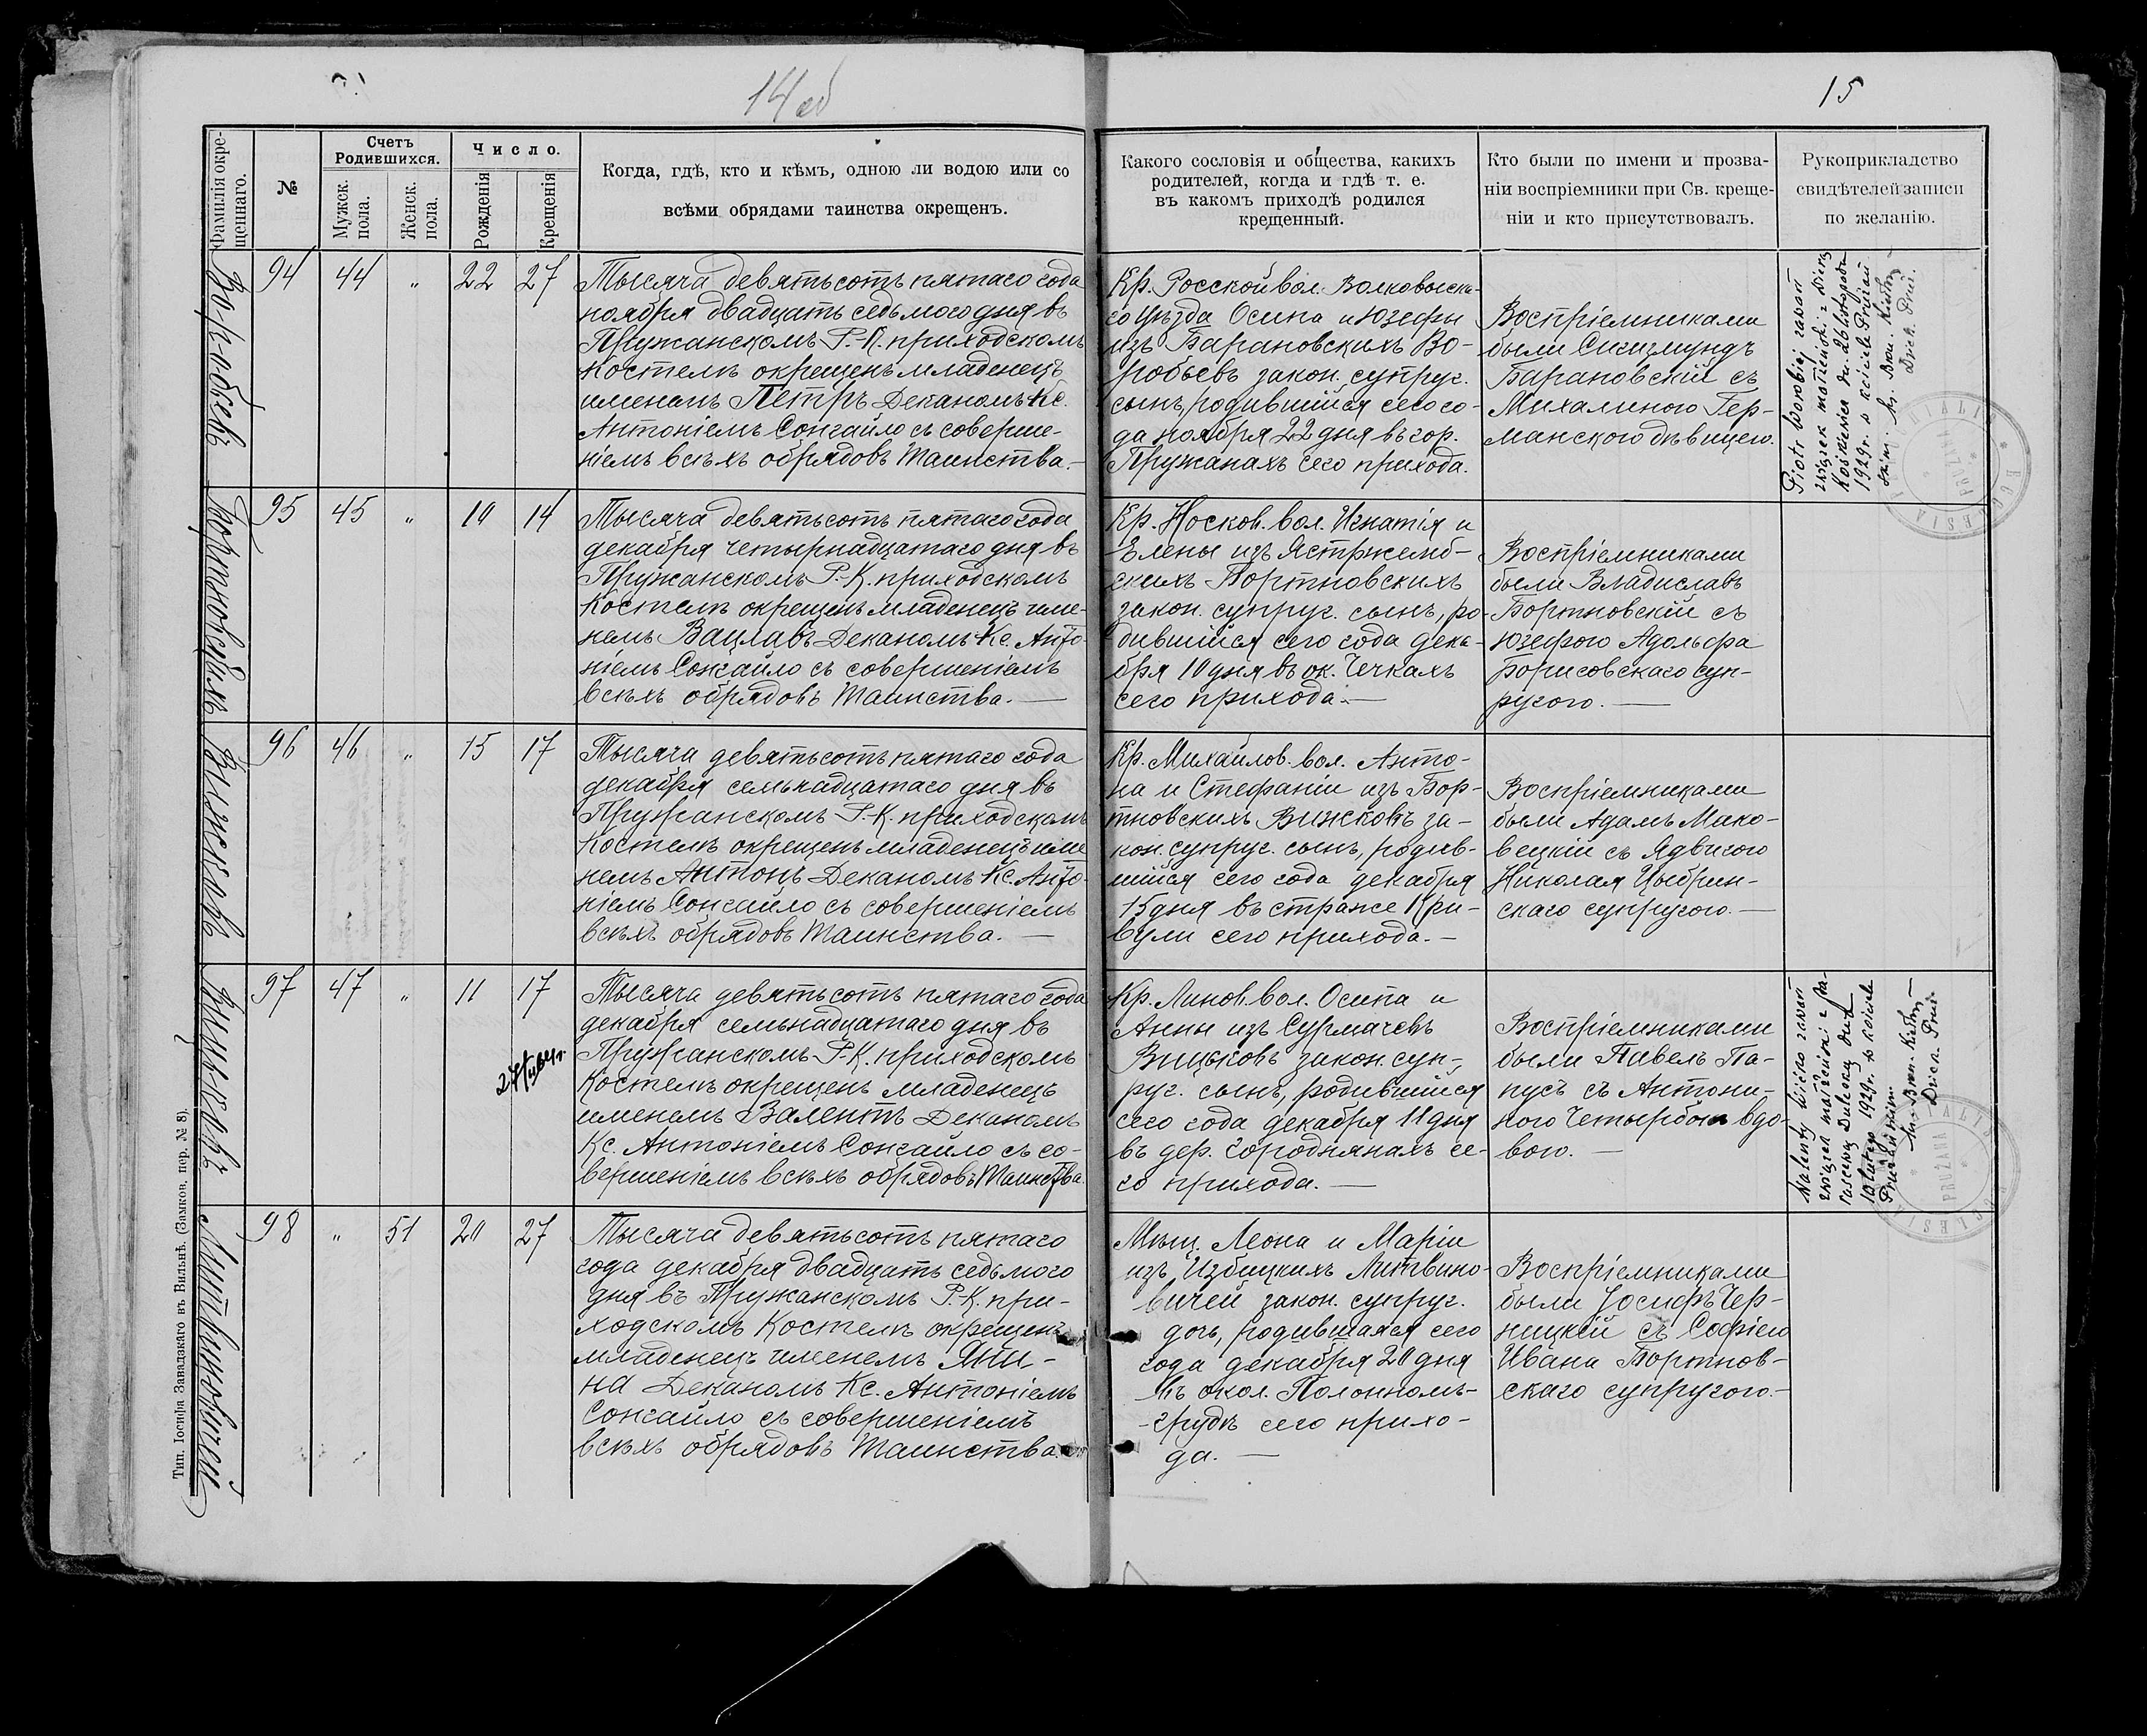 14 об
15
Фамилія окре-
щеннаго.
№
Счетъ
Родившихся.
Мужск.
пола.
Женск.
пола.
Число.
Рожденія
Крещенія
Когда, гдѣ, кто и кѣмъ, одною ли водою или со
всѣми обрядами таинства окрещенъ.
Какого сословія и общества, какихъ
родителей, когда и гдѣ т. е.
въ какомъ приходѣ родился
крещенный.
Кто были по имени и прозва-
ніи воспріемники при Св. креще-
ніи и кто присутствовалъ.
Рукоприкладство
свидѣтелей записи
по желанію.
Воробьевъ
94 44 „ 22 27
Тысяча девятьсотъ пятаго года
ноября двадцать седьмого дня въ
Пружанскомъ Р.-К. приходскомъ
Костелѣ окрещенъ младенецъ
именемъ Петръ Деканомъ Кс.
Антоніемъ Сонгайло съ соверше-
ніемъ всѣхъ обрядовъ Таинства.—
Кр. Росской вол. Волковыска-
го уѣзда Осипа и Юзефы
изъ Барановскихъ Во-
робьевъ закон. супруг.
сынъ, родившійся сего го-
да ноября 22 дня въ гор.
Пружанахъ сего прихода.
Воспріемниками
были Сигизмундъ
Барановскій съ
Михалиною Гер-
манскою дѣвицею.
Piotr Worobiej zawarł
związek małżeński z Wierą
Kośkiewicz dn. 26 listopada
1929 r. w kościele Prużań
skim. ks. Bron. Kiełm
Dziek. Pruż.
Бортновскихъ
95 45 „ 10 14
Тысяча девятьсотъ пятаго года
декабря четырнадцатаго дня въ
Пружанскомъ Р.-К. приходскомъ
Костелѣ окрещенъ младенецъ име-
немъ Вацлавъ Деканомъ Кс. Анто-
ніемъ Сонгайло съ совершеніемъ
всѣхъ обрядовъ Таинства.—
Кр. Носков. вол. Игнатія и
Елены изъ Ястржемб-
скихъ Бортновскихъ
закон. супруг. сынъ, ро-
дившійся сего года дека-
бря 10 дня въ ок. Чечкахъ
сего прихода.—
Воспріемниками
были Владиславъ
Бортновскій съ
Юзефою Адольфа
Борисовскаго суп-
ругою.—
Вижковъ
96 46 „ 15 17
Тысяча девятьсотъ пятаго года
декабря семьнадцатаго дня въ
Пружанскомъ Р.-К. приходскомъ
Костелѣ окрещенъ младенецъ име
немъ Антонъ Деканомъ Кс. Анто-
ніемъ Сонгайло съ совершеніемъ
всѣхъ обрядовъ Таинства.—
Кр. Михайлов. вол. Анто-
на и Стефаніи изъ Бор-
тновскихъ Вижковъ за-
кон. супруг. сынъ, родив-
шійся сего года декабря
15 дня въ страже Кри-
вули сего прихода.—
Воспріемниками
были Адамъ Мако-
вецкій съ Ядвигою
Николая Цыбрин-
скаго супругою.—
Вицьковъ
97 47 „ 11 17
Тысяча девятьсотъ пятаго года
декабря семьнадцатаго дня въ
Пружанскомъ Р.-К. приходскомъ
Костелѣ окрещенъ младенецъ
именемъ Валентъ Деканомъ
Кс. Антоніемъ Сонгайло съ со-
вершеніемъ всѣхъ обрядовъ Таинства.
Кр. Линов. вол. Осипа и
Анны изъ Сурмачевъ
Вицьковъ закон. суп-
руг. сынъ, родившійся
сего года декабря 11 дня
въ дер. Городнянахъ се-
го прихода.—
Воспріемниками
были Павелъ Па-
пусъ съ Антони-
ною Четырбокъ вдо-
вою.—
Walenty Wićko zawarł
związek małżeński z Pa-
10 lutego 1929 r. w kościele
Prużańskim
ks. Bron. Kiełm —
Dziek. Pruż.
Литвиновичей
98 „ 51 20 27
Тысяча девятьсотъ пятаго
года декабря двадцать седьмого
дня въ Пружанскомъ Р.-К. при-
ходскомъ Костелѣ окрещенъ
младенецъ именемъ Яни-
на Деканомъ Кс. Антоніемъ
Сонгайло съ совершеніемъ
всѣхъ обрядовъ Таинства.
Мѣщ. Леона и Маріи
изъ Избицкихъ Литвино-
вичей закон. супруг.
дочь, родившаяся сего
года декабря 20 дня
въ окол. Полонномъ-
-грудкѣ сего прихо-
да.—
Воспріемниками
были Іосифъ Чер-
ницкій съ Софіею
Ивана Бортнов-
скаго супругою.—
Тип. Іосифа Завадзкаго въ Вильнѣ. (Замков. пер. № 8).